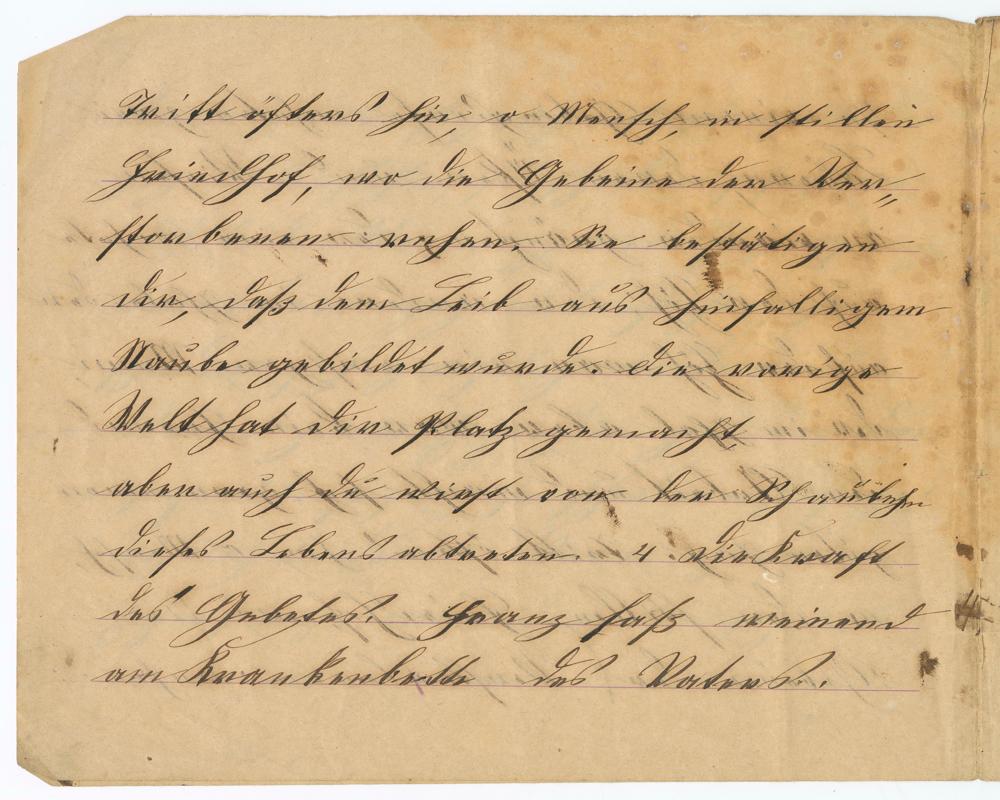 Tritt öfters hin, o Mensch, in stillen
Friedhof, wo die Gebeine der Ver„
storbenen ruhen. Sie bestätigen
dir, daß dem Leib aus hinfalligem
Staube gebildet wurde. Die vorige
Welt hat dir Platz gemacht,
aber auch du wirst von der Schaubühn
dieses Lebens abtreten. 4. Die Kraft
des Gebetes. Franz saß weinend
am Krankenbette des Vaters.